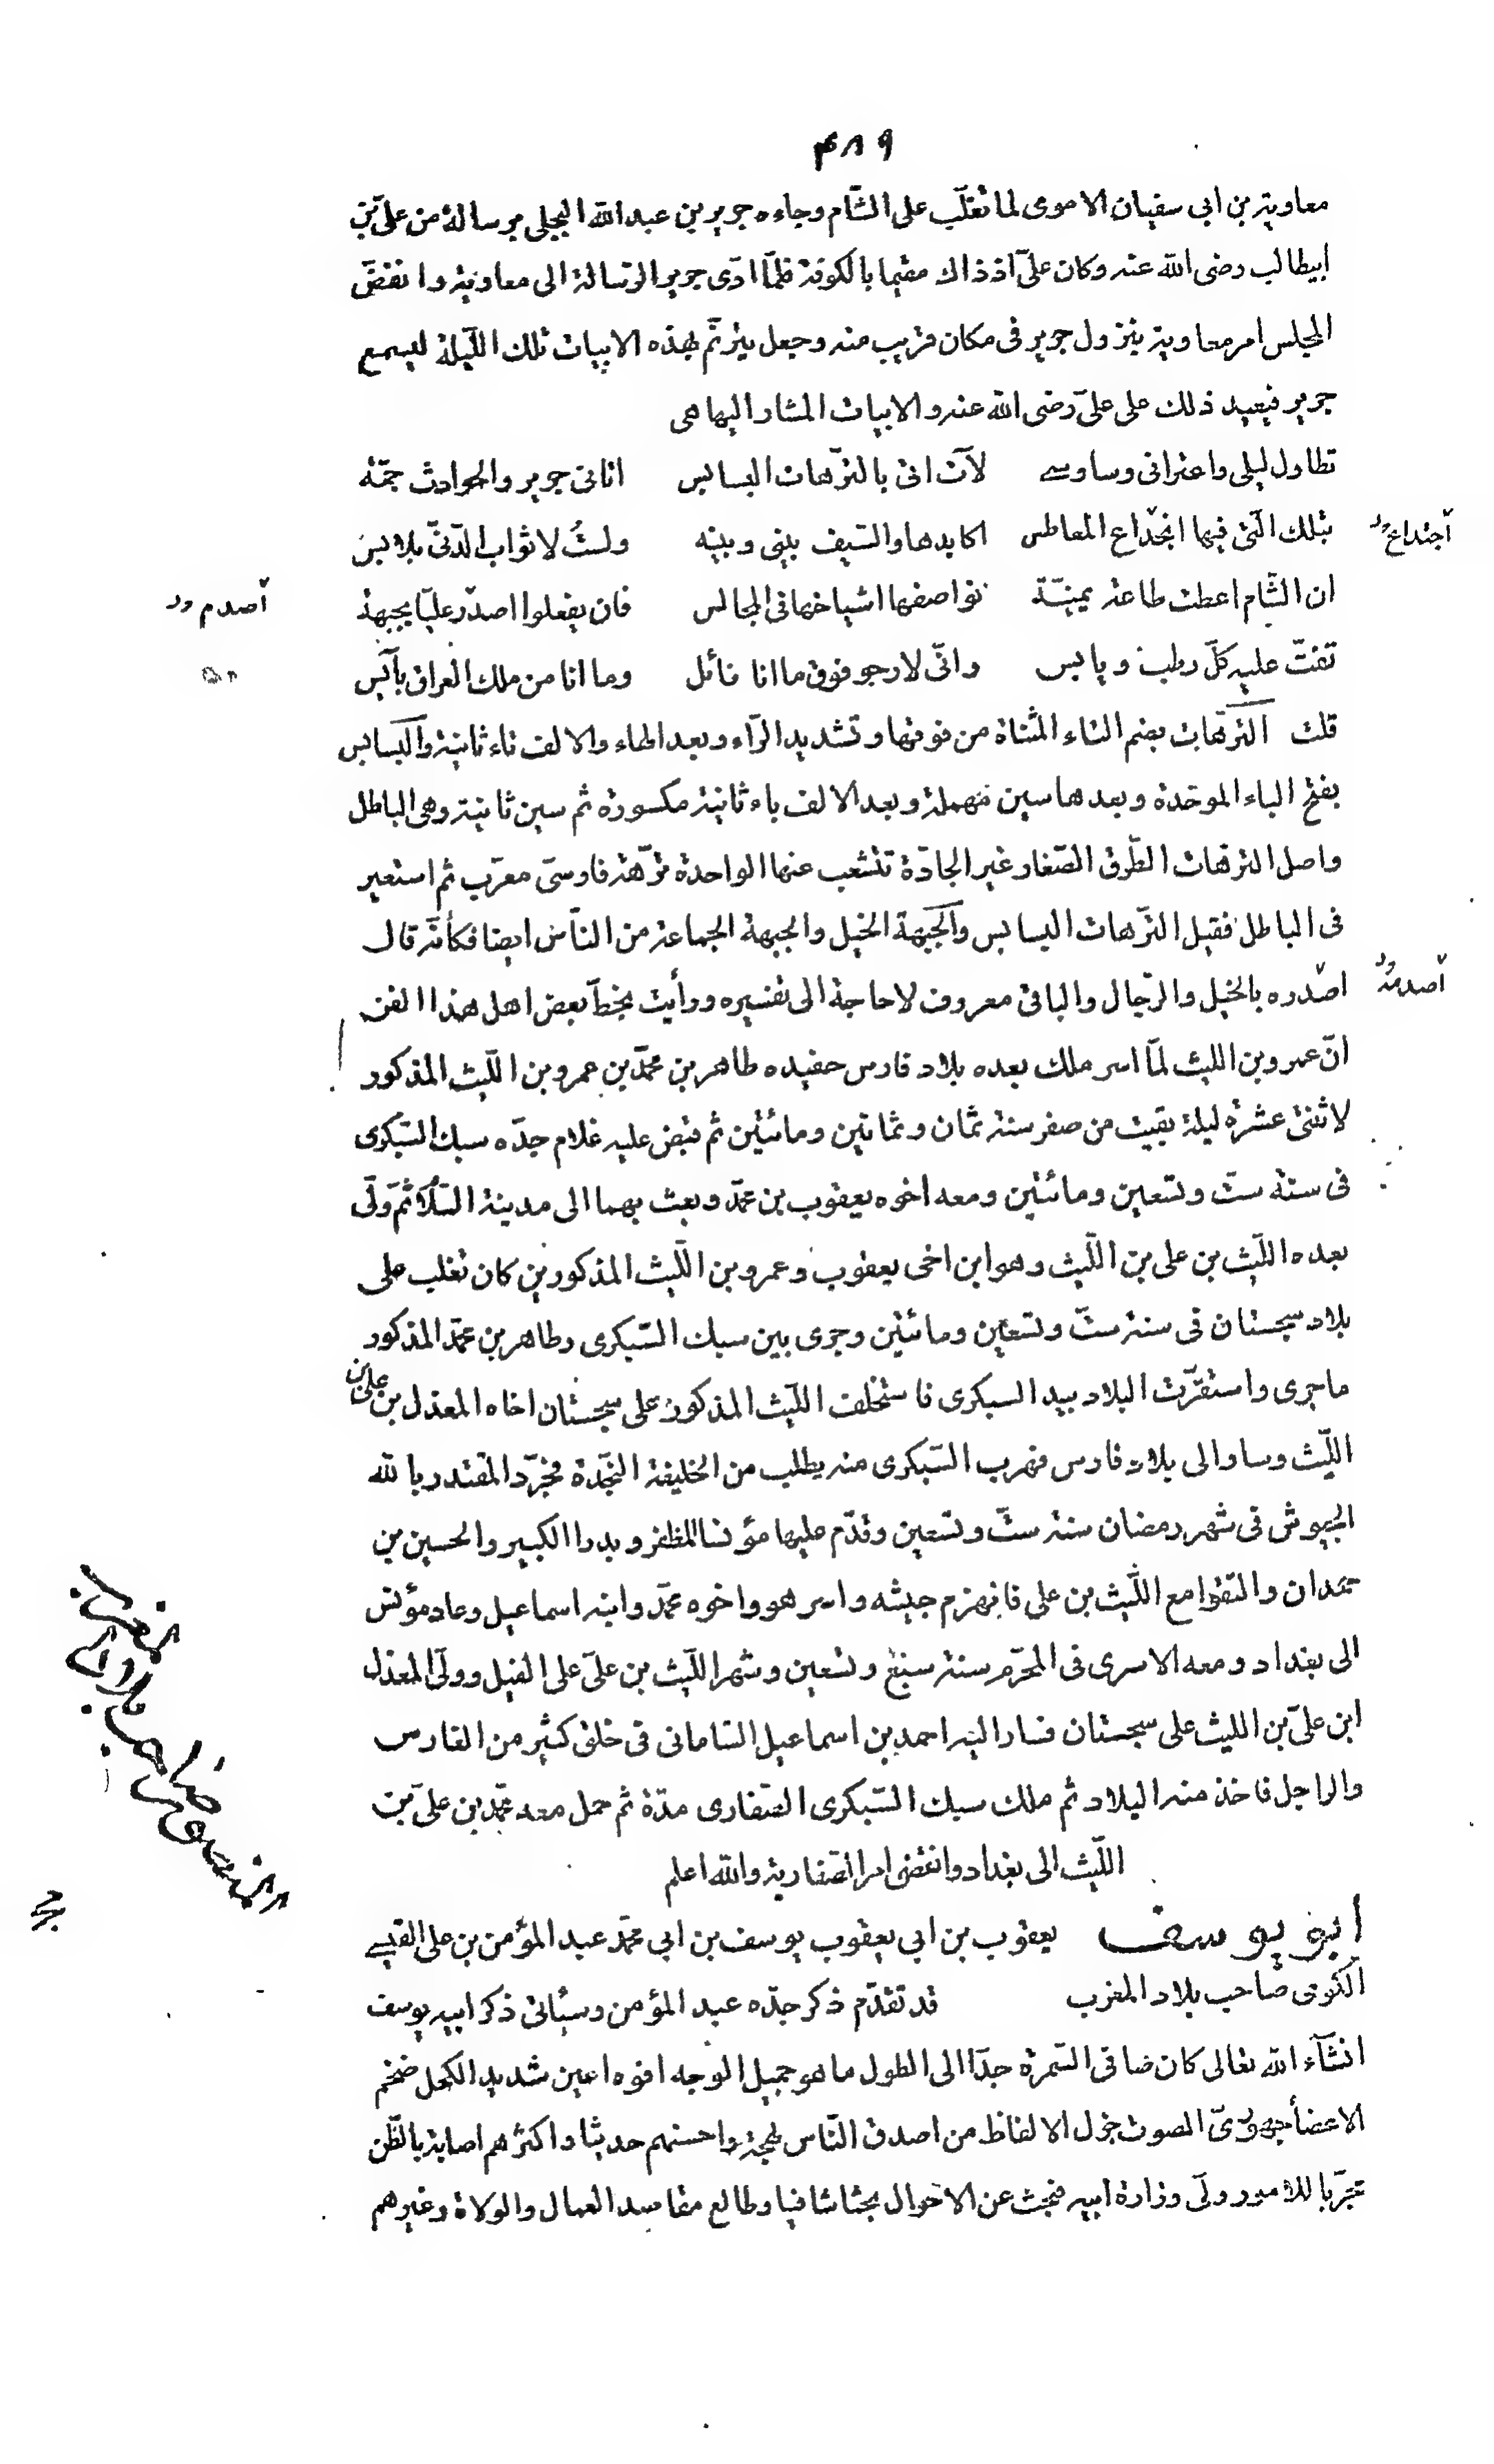 ٤٨٩
معاوية بن ابى سفيان الاموى لما تغلّب على الشّام وجاءه جرير بن عبد الله البجلى برسالة من علىّ بن
ابيطالب رضى الله عنه وكان علىّ اذ ذاك مقيما بالكوفة فلمّا ادّى جرير الرّسالة الى معاوية وانفضّ
المجلس امر معاوية بنزول جرير فى مكان قريب منه وجعل يترنّم بهذه الابيات تلك اللّيلة ليسمع
جرير فيعيد ذلك على علىّ رضى الله عنه والابيات المشار اليها هى
تطاول ليلى واعترانى وساوسے لآت اتى بالترّهات البسابس اتانى جرير والحوادث جمّة
بتلك الّتى فيها انجداع المعاطس اكايدها والسّيف بينى وبينه ولستُ لاثواب الدّنىّ بلابس
أجتداع
ان الشّام اعطت طاعة يمنيّة تواصفها اشياخها فى المجالس فان يفعلوا اصدّر عليّا بجبهة
أصدم
تفتّ عليه كلّ رطب ويابس وانّى لارجو فوق ما انا نائل وما انا من ملك العراق بآيس
قلت الترّهات بضم التاء المثناة من فوقها وتشديد الرّاء وبعد الهاء والالف تاء ثانية والبسابس
بفتح الباء الموحّدة وبعدها سين مهملة وبعد الالف باء ثانية مكسورة ثم سين ثانية وهى الباطل
واصل الترهات الطّرق الصّغار غير الجادّة تتشعب عنها الواحدة ترّهة فارسىّ معرّب ثم استعير
فى الباطل فقيل الترّهات البسابس والجبهة الخيل والجبهة الجماعة من النّاس ايضا فكأنّه قال
اصدّره بالخيل والرّجال والباقى معروف لا حاجة الى تفسيره ورأيت بخطّ بعض اهل هذا الفن
أصدمه
انّ عمرو بن الليث لمّا اسر ملك بعده بلاد فارس حفيده طاهر بن محمّد بن عمرو بن اللّيث المذكور
لاثنتى عشرة ليلة بقيت من صفر سنة ثمان وثمانين ومائتين ثم قبض عليه غلام جدّه سبك السّبكرى
فى سنة ستّ وتسعين ومائتين ومعه اخوه يعقوب بن محمّد وبعث بهما الى مدينة السّلام ثم ولّى
بعده اللّيث بن على بن اللّيث وهو ابن اخى يعقوب وعمرو بن اللّيث المذكورين كان تغلب على
بلاد سجستان فى سنة ستّ وتسعين ومائتين وجرى بين سبك السّبكرى وطاهر بن محمّد المذكور
ما جرى واستقرّت البلاد بيد السبكرى فاستخلف اللّيث المذكور على سجستان اخاه المعدل بن على بن
اللّيث وسار الى بلاد فارس فهرب السّبكرى منه يطلب من الخليفة النّجدة فجرّد المقتدر بالله
الجيوش فى شهر رمضان سنة ستّ وتسعين وقدّم عليها مؤنسا المظفر وبدرا الكبير والحسين بن
حمدان والتقوا مع اللّيث بن على فانهزم جيشه واسر هو واخوه محمّد وابنه اسماعيل وعاد مؤنس
الى بغداد ومعه الاسرى فى المحرّم سنة سبع وتسعين وشهر اللّيث بن علىّ على الفيل وولّى المعدل
ابن علىّ بن الليث على سجستان فسار اليه احمد بن اسماعيل السّامانى فى خلق كثير من الفارس
والراجل فاخذ منه البلاد ثم ملك سبك السّبكرى الصّفارى مدّة ثم حمل معه محمّد بن علىّ بن
اللّيث الى بغداد وانقضى امر الصّفارية والله اعلم
ابو يوسف يعقوب بن ابى يعقوب يوسف بن ابى محمّد عبد المؤمن بن على القيسے
الكومى صاحب بلاد المغرب قد تقدّم ذكر جدّه عبد المؤمن وسيأتى ذكر ابيه يوسف
انشآء الله تعالى كان صافى السّمرة جدّا الى الطول ما هو جميل الوجه افوه اعين شديد الكحل ضخم
الاعضأ جهورىّ الصوت جزل الالفاظ من اصدق النّاس لهجة واحسنهم حديثا واكثرهم اصابة بالظّن
مجرّبا للامور ولّى وزارة ابيه فبحث عن الاحوال بحثا شافيا وطالع مقاصد العمال والولاة وغيرهم
ابو يوسف صاحب بلاد المغرب